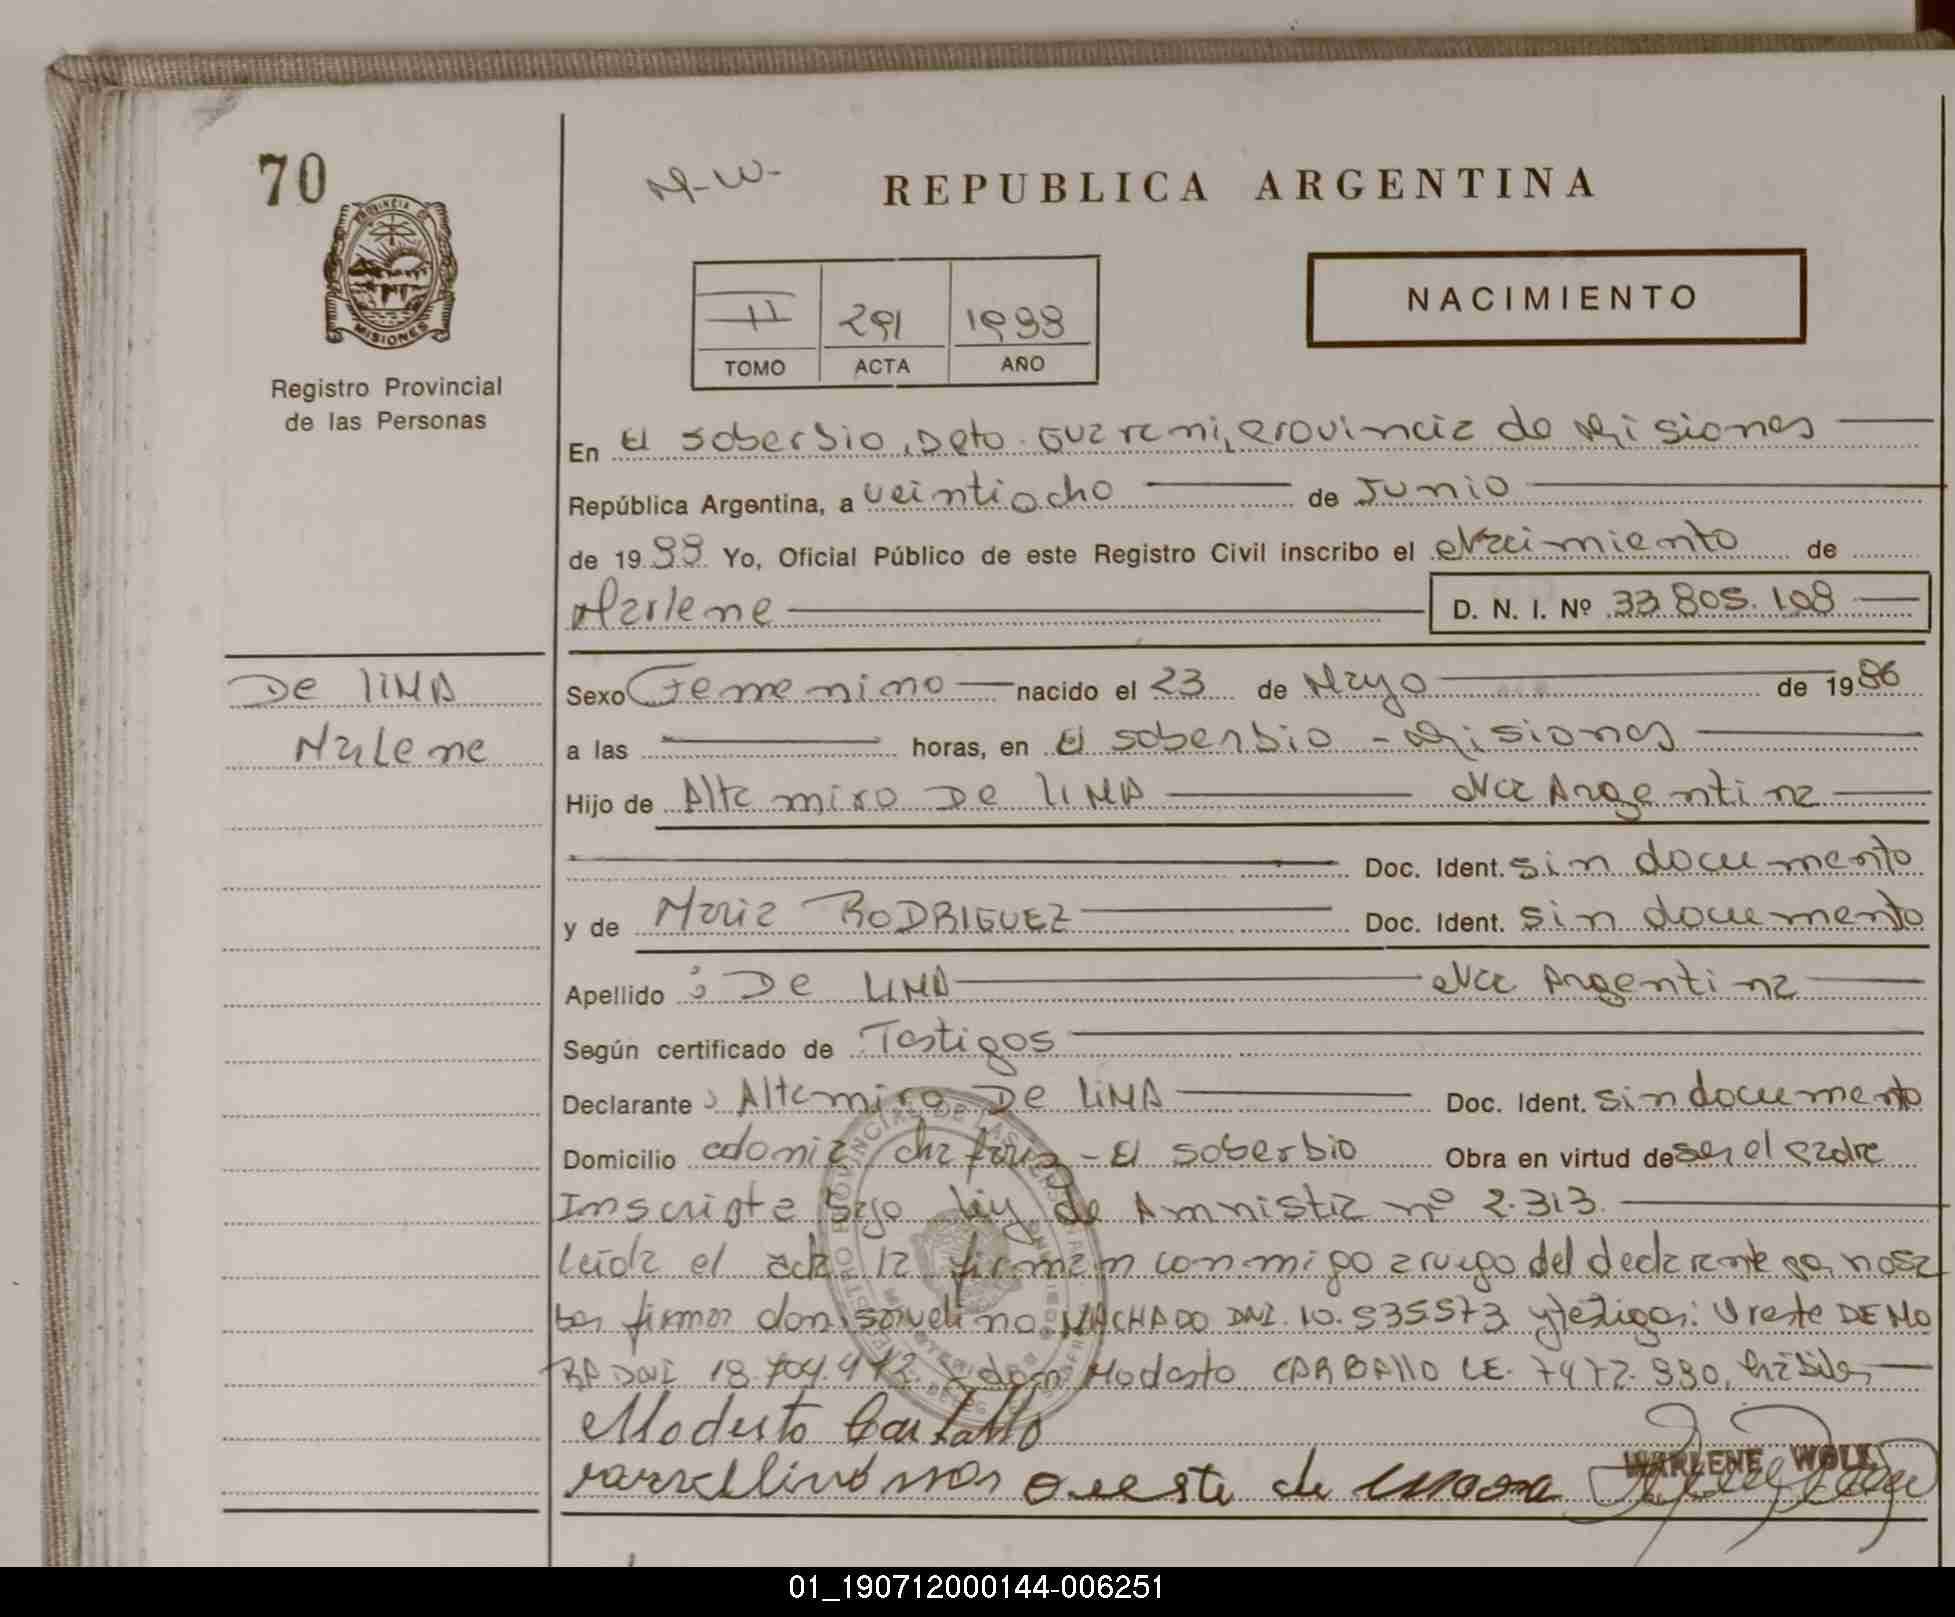 70
M-W-
REPUBLICA ARGENTINA
PROVINCIA DE
MISIONES
NACIMIENTO
II 291 1988
TOMO ACTA AÑO
Registro Provincial
de las Personas
En El Soberbio, Dpto. Guarani, Provincia de Misiones
República Argentina, a veintiocho de Junio
de 19 88 Yo, Oficial Público de este Registro Civil inscribo el Nacimiento de
Marlene D. N. I. Nº 33.805.108
De LIMA
Marlene
Sexo Femenino nacido el 23 de Mayo de 19 86
a las horas, en El Soberbio - Misiones
Hijo de Altamiro De LIMA Nac Argentina
Doc. Ident. sin documento
y de Maria RODRIGUEZ Doc. Ident. sin documento
Apellido : De LIMA Nac Argentina
Según certificado de Testigos
Declarante : Altamiro De LIMA Doc. Ident. sin documento
Domicilio Colonia - El Soberbio Obra en virtud de ser el padre
Inscripta bajo Ley de Amnistia nº 2.313.
Leida el acta la firman conmigo a ruego del declarante por no sa
ber firmar don MACHADO DNI. 10.535573 y testigos: Oreste DE MO
RA DNI 18.704.412. y don Modesto CARBALLO LE. 7472.330, habiles
Modesto Carballo
Oreste de Mora
MARLENE WOLL
01_190712000144-006251